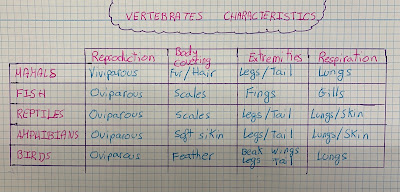 VERTEBRATES CHARACTERISTICS
Reproduction Body coveting Extremities Respiration
MAMALS Viviparous Fur/Hair Legs/Tail Lungs
FISH Oviparous Scales Fings Gills
REPTILES Oviparous Scales Legs/Tail Lungs/Skin
AMPHIBIANS Oviparous Soft sikin Legs/Tail Lungs/Skin
BIRDS Oviparous Feather Beak wings Legs Tail Lungs